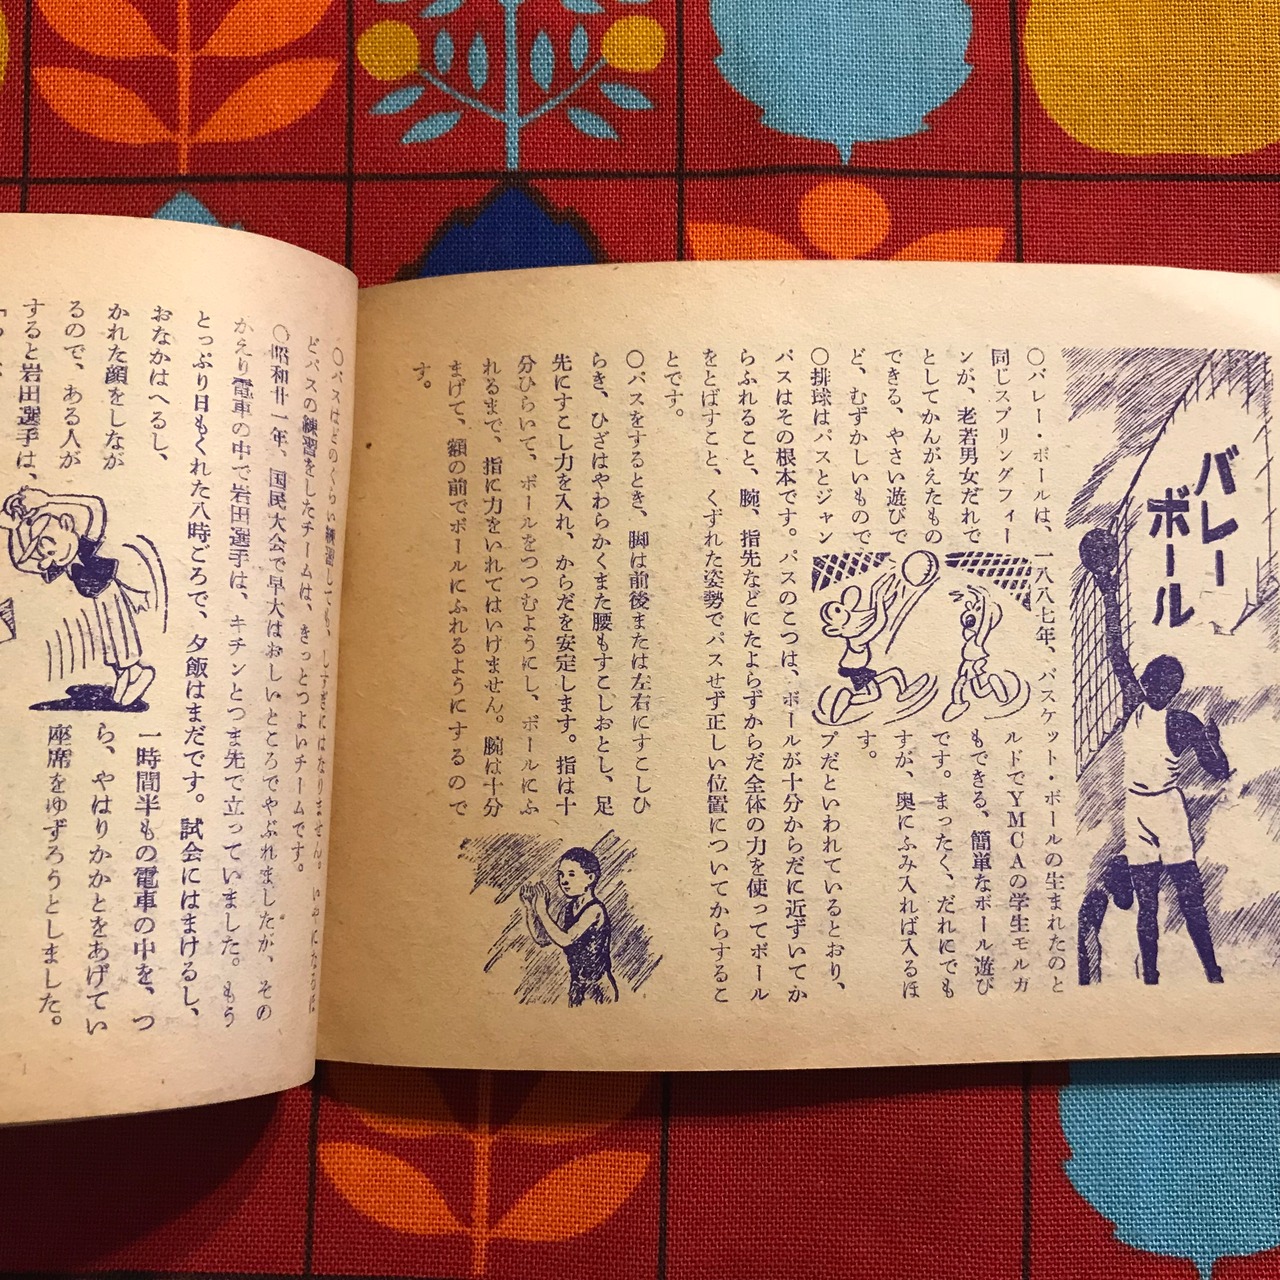 バレー
ボール
〇バレー・ボールは、一八八七年、バスケット・ボールの生まれたのと
同じスプリングフィールドでYMCAの学生モルガ
ンが、老若男女だれでもできる、簡単なボール遊び
としてかんがえたものです。まったく、だれにでも
できる、やさい遊びですが、奥にふみ入れば入るほ
ど、むずかしいものです。
〇排球はパスとジャンプだといわれているとおり、
パスはその根本です。パスのこつは、ボールが十分からだに近ずいてか
らふれること、腕、指先などにたよらずからだ全体の力を使ってボール
をとばすこと、くずれた姿勢でパスせず正しい位置についてからするこ
とです。
〇パスをするとき、脚は前後または左右にすこしひ
らき、ひざはやわらかくまた腰もすこしおとし、足
先にすこし力を入れ、からだを安定します。指は十
分ひらいて、ボールをつつむようにし、ボールにふ
れるまで、指に力をいれてはいけません。腕は十分
まげて、額の前でボールにふれるようにするので
す。
〇パスはどのくらい練習しても、しすぎにはなりません。いやになるほ
どパスの練習をしたチームは、きっとつよいチームです。
〇昭和廿一年、国民大会で早大はおしいところでやぶれましたが、その
かえり電車の中で岩田選手は、キチンとつま先で立っていました。もう
とっぷり日もくれた八時ごろで、夕飯はまだです。試会にはまけるし、
おなかはへるし、一時間半もの電車の中を、つ
かれた顔をしながら、やはりかかとをあげてい
るので、ある人が座席をゆずろうとしました。
すると岩田選手は、